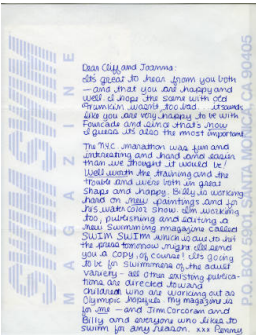 Dear Cliff and Joanna:
It's great to hear from you both
— and that you are happy and
well. I hope the same with old
Grumkin wasn't too bad. It sounds
like you are very happy to be with
Fourcade and since that's now
I guess its also the most important.
The N.Y.C. marathon was fun and
interesting and hard and easier
than we thought it would be!
Well worth the training and the
trouble and we're both in great
shape and happy. Billy is working
hard on new paintings and for
his watercolor show. I'm working
too, publishing and editing a
new swimming magazine called
SWIM SWIM which is due to hit
the press tomorrow night. I'll send
you a copy, of course! It's going
to be for swimmers of the adult
variety — all other existing publica-
tions are directed toward
children who are working out as
Olympic hopefuls. My magazine is
for me — and Jim Corcoran and
Billy and everyone who likes to
swim for any reason. xxx Penny
SWIM SWIM
MAGAZINE
MONICA, CA 90405